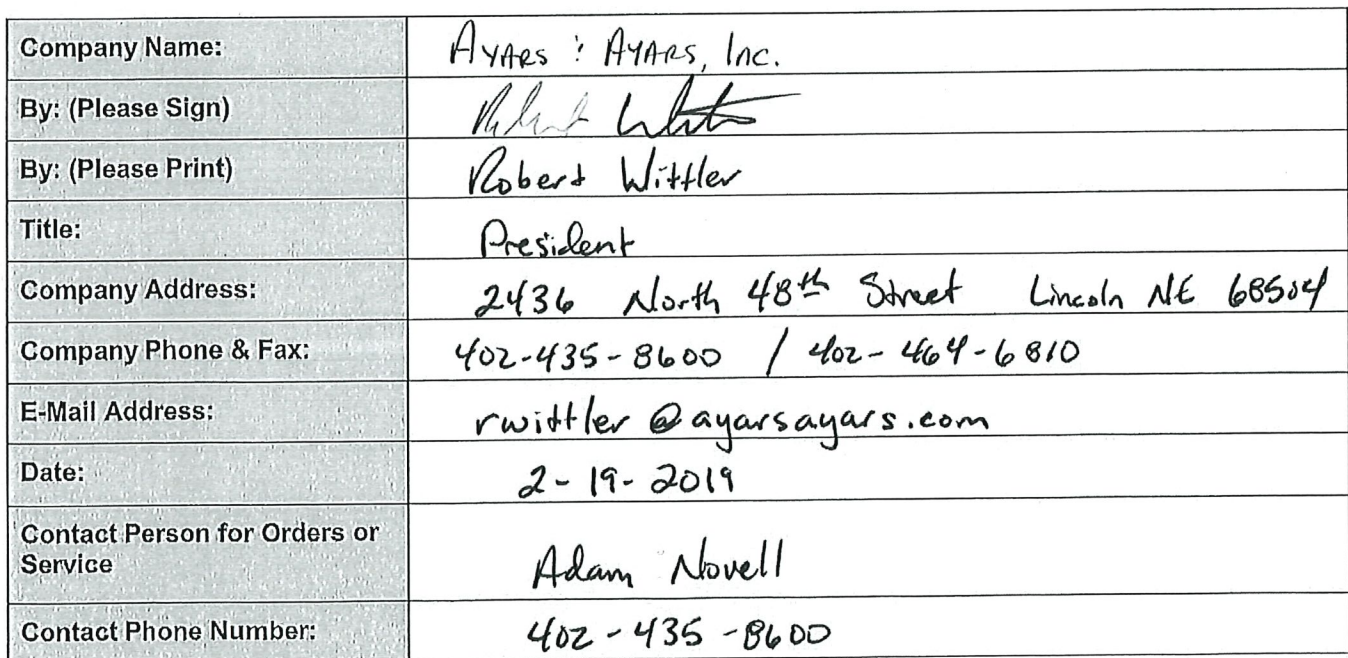 Company Name: Ayars & Ayars, Inc.
By: (Please Sign)
By: (Please Print) Robert Wittler
Title: President
Company Address: 2436 North 48th Street Lincoln NE 68504
Company Phone & Fax: 402-435-8600 / 402-464-6810
E-Mail Address: rwittler@ayarsayars.com
Date: 2-19-2019
Contact Person for Orders or
Service Adam Novell
Contact Phone Number: 402-435-8600